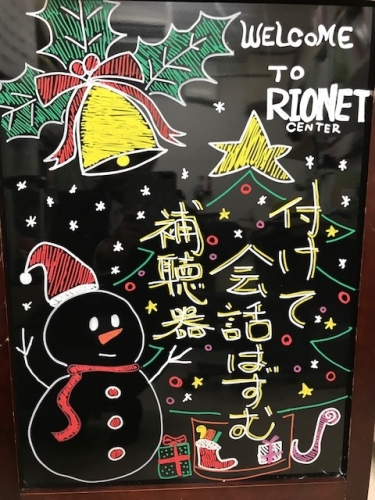 WELCOME
TO
RIONET
CENTER
付けて
会話ばずむ
補聴器